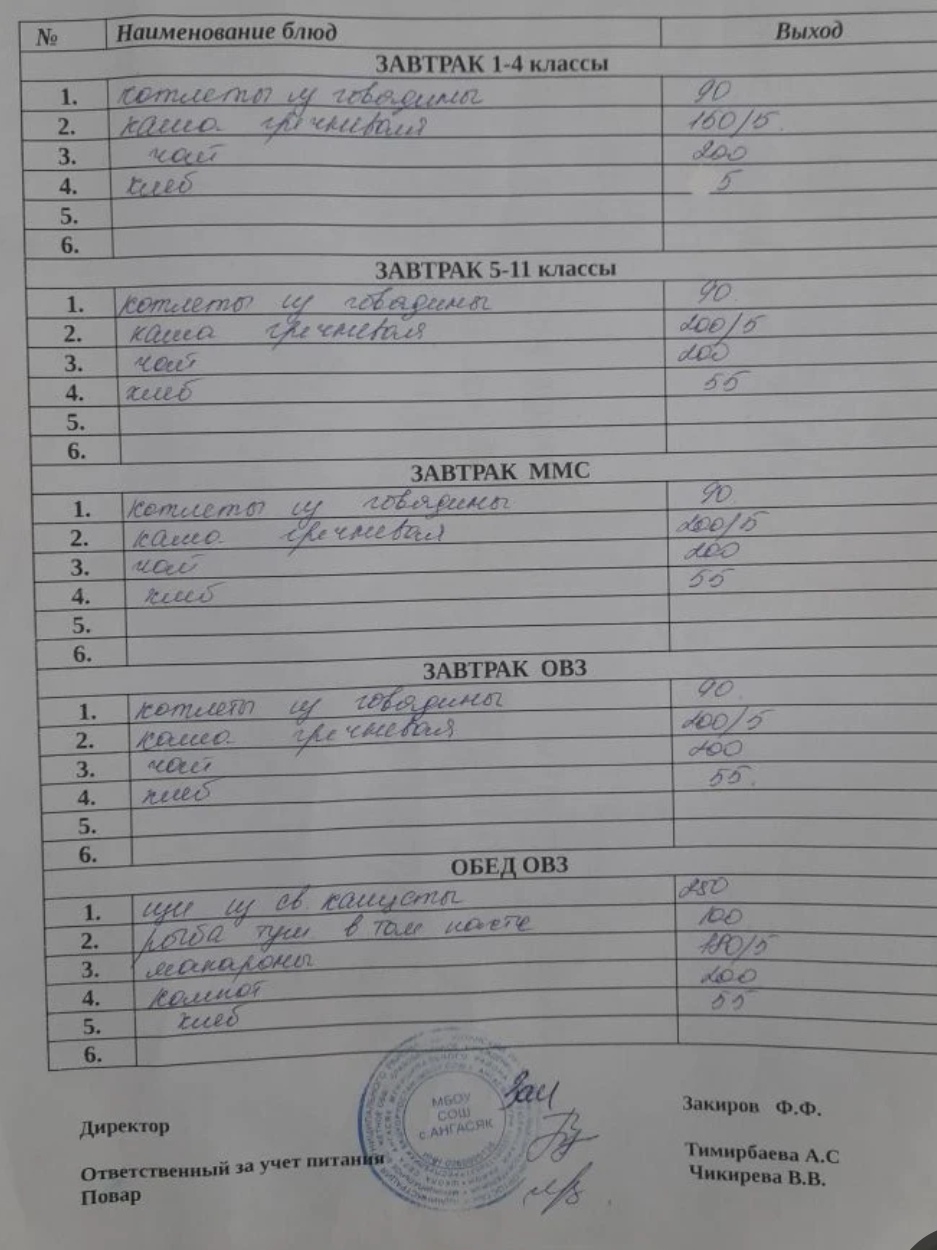 № Наименование блюд Выход
ЗАВТРАК 1-4 классы
1. котлеты из говядины 90
2. каша гречневая 150/5
3. чай 200
4. хлеб 5
5.
6.
ЗАВТРАК 5-11 классы
1. котлеты из говядины 90
2. каша гречневая 200/5
3. чай 200
4. хлеб 55
5.
6.
ЗАВТРАК ММС
1. котлеты из говядины 90
2. каша гречневая 200/5
3. чай 200
4. хлеб 55
5.
6.
ЗАВТРАК ОВЗ
1. котлеты из говядины 90
2. каша гречневая 200/5
3. чай 200
4. хлеб 55
5.
6.
ОБЕД ОВЗ
1. щи из св. капусты 250
2. рыба туш в том пасте 100
3. макароны 180/5
4. компот 200
5. хлеб 55
6.
МБОУ
СОШ
с.АНГАСЯК
Директор Закиров Ф.Ф.
Ответственный за учет питания Тимирбаева А.С
Повар Чикирева В.В.